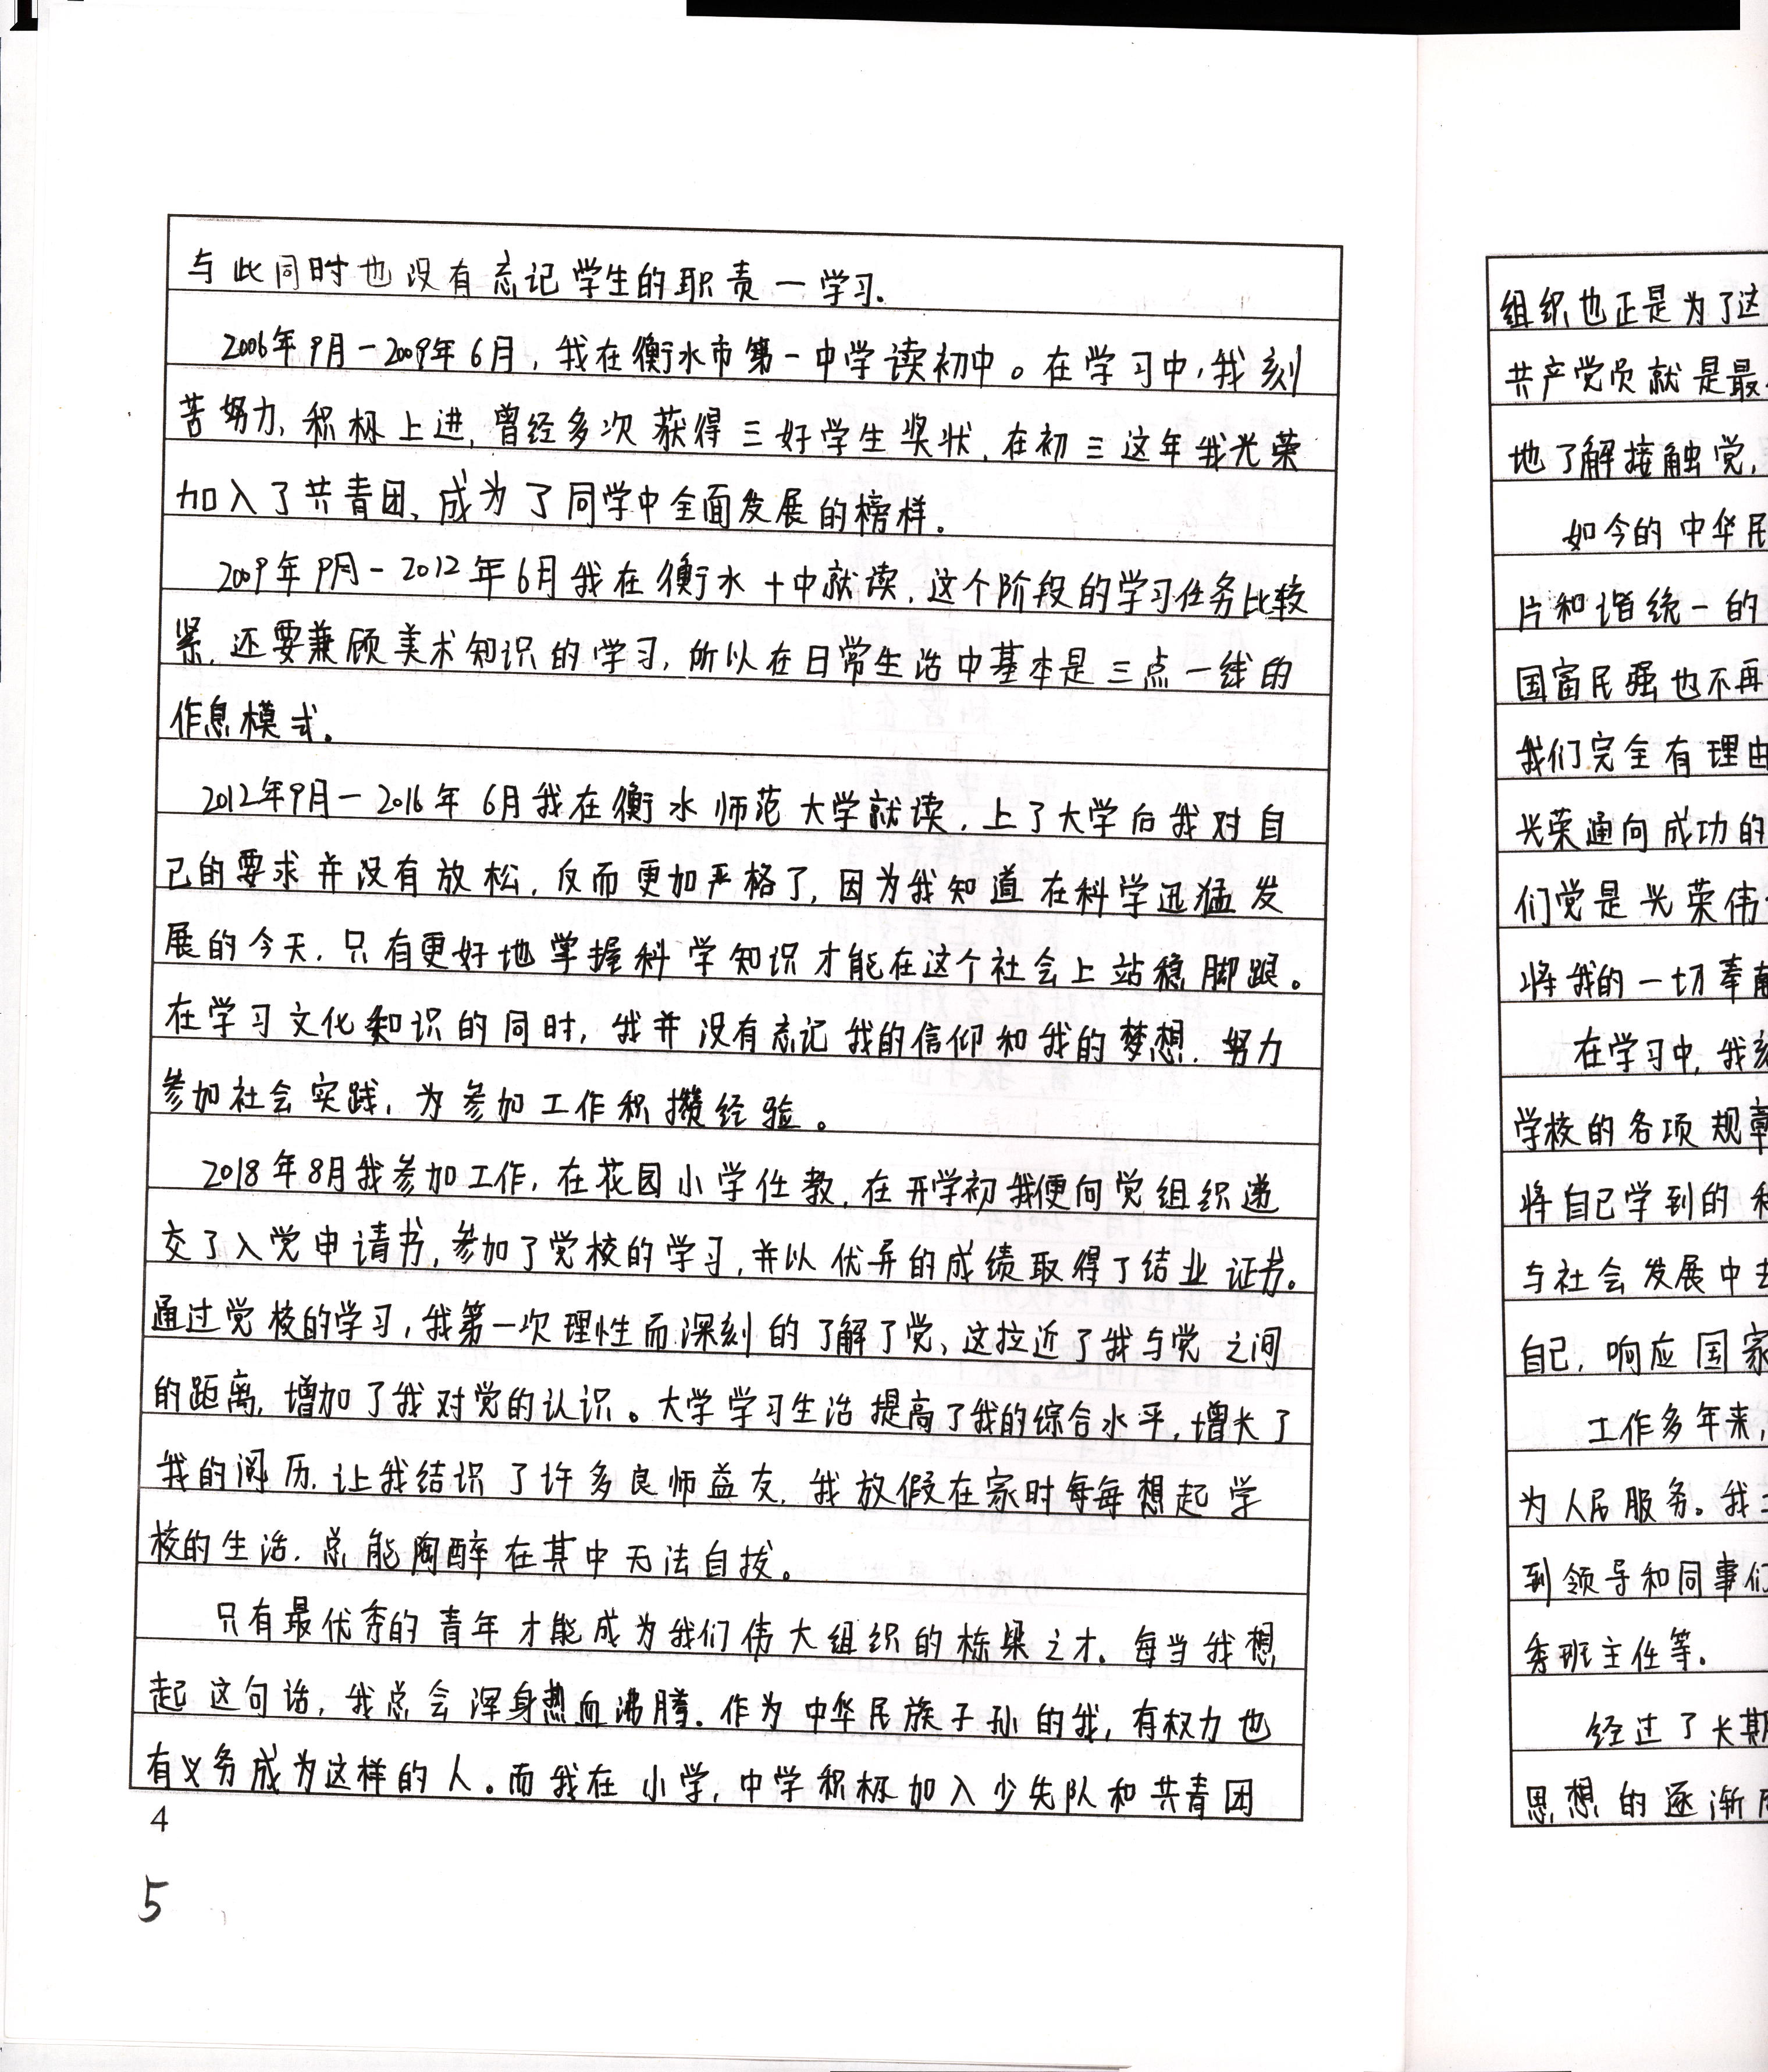 与此同时也没有忘记学生的职责一学习.
2006年9月一2009年6月,我在衡水市第一中学读初中。在学习中,我刻
苦努力,积极上进,曾经多次获得三好学生奖状,在初三这年我光荣
加入了共青团、成为了同学中全面发展的榜样。
2009年9月-2012年6月我在衡水十中就读,这个阶段的学习任务比较
紧,还要兼顾美术知识的学习,所以在日常生活中基本是三点一线的
作息模式。
2012年9月一2016年6月我在衡水师范大学就读,上了大学后我对自
己的要求并没有放松,反而更加严格了,因为我知道在科学迅猛发
展的今天,只有更好地掌握科学知识才能在这个社会上站稳脚跟。
在学习文化知识的同时,我并没有忘记我的信仰和我的梦想,努力
参加社会实践,为参加工作积攒经验。
2018年8月我参加工作,在花园小学任教,在开学初我便向党组织递
交了入党申请书,参加了党校的学习,并以优异的成绩取得了结业证书。
通过党校的学习,我第一次理性而深刻的了解了党、这拉近了我与党之间
的距离,增加了我对党的认识。大学学习生活提高了我的综合水平,增长了
我的阅历,让我结识了许多良师益友,我放假在家时每每想起学
校的生活,总能陶醉在其中无法自拔。
只有最优秀的青年才能成为我们伟大组织的栋梁之才。每当我想
起这句话,我总会浑身热血沸腾.作为中华民族子孙的我,有权力也
有义务成为这样的人。而我在小学,中学积极加入少先队和共青团
4
5
组织也正是为了这
共产党员就是最
地了解接触党,
如今的中华民
片和谐统一的
国富民强也不再
我们完全有理由
光荣通向成功的
们党是光荣伟
将我的一切奉献
在学习中,我刻
学校的各项规章
将自己学到的
与社会发展中去
自己,响应国家
工作多年来,
为人民服务。我
到领导和同事们
秀班主任等.
经过了长期
思想的逐渐